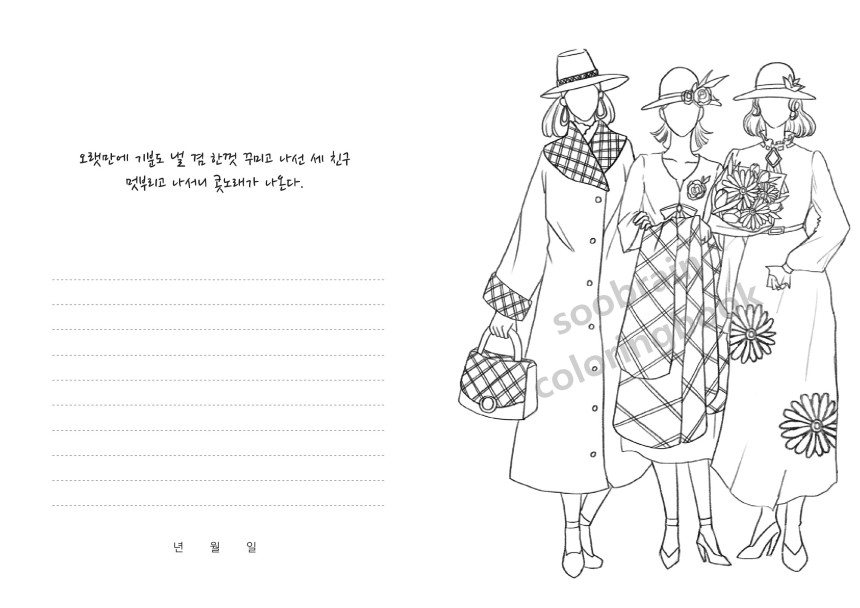 오랫만에 기분도 낼 겸 한껏 꾸미고 나선 세 친구
멋부리고 나서니 콧노래가 나온다.
soobrain
coloringbook
년 월 일